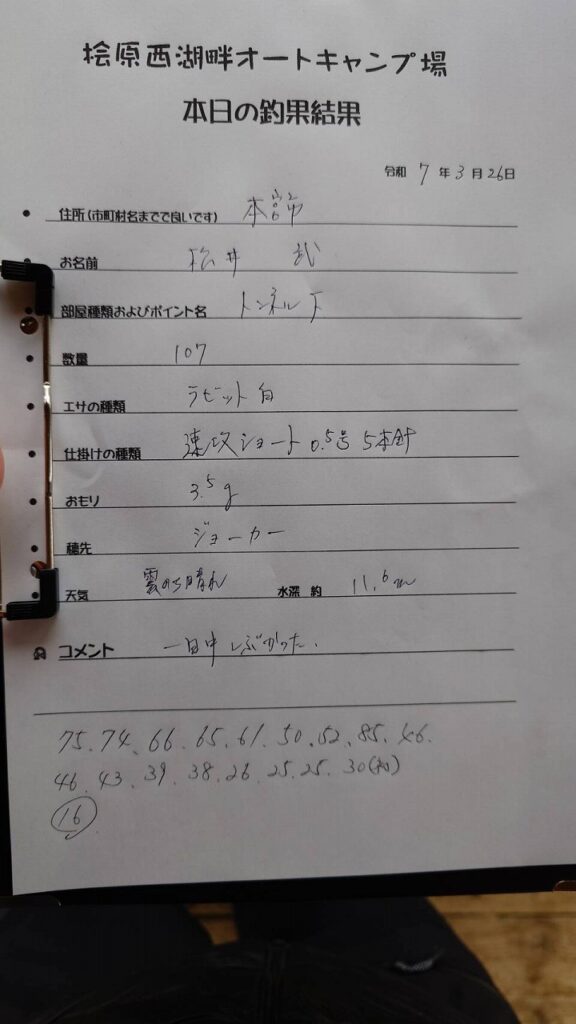 桧原西湖畔オートキャンプ場
本日の釣果結果
令和 7 年 3 月 26 日
住所(市町村名までで良いです) 本宮市
お名前 松井 武
部屋種類およびポイント名 トンネル下
数量 107
エサの種類 ラビット白
仕掛けの種類 速攻ショート 0.5号 5本針
おもり 3.5g
穂先 ジョーカー
天気 雲のち晴れ 水深 約 11.6m
コメント 一日中しぶかった.
75.74.66.65.61.50.52.85.46.
46.43.39.38.26.25.25.30
16